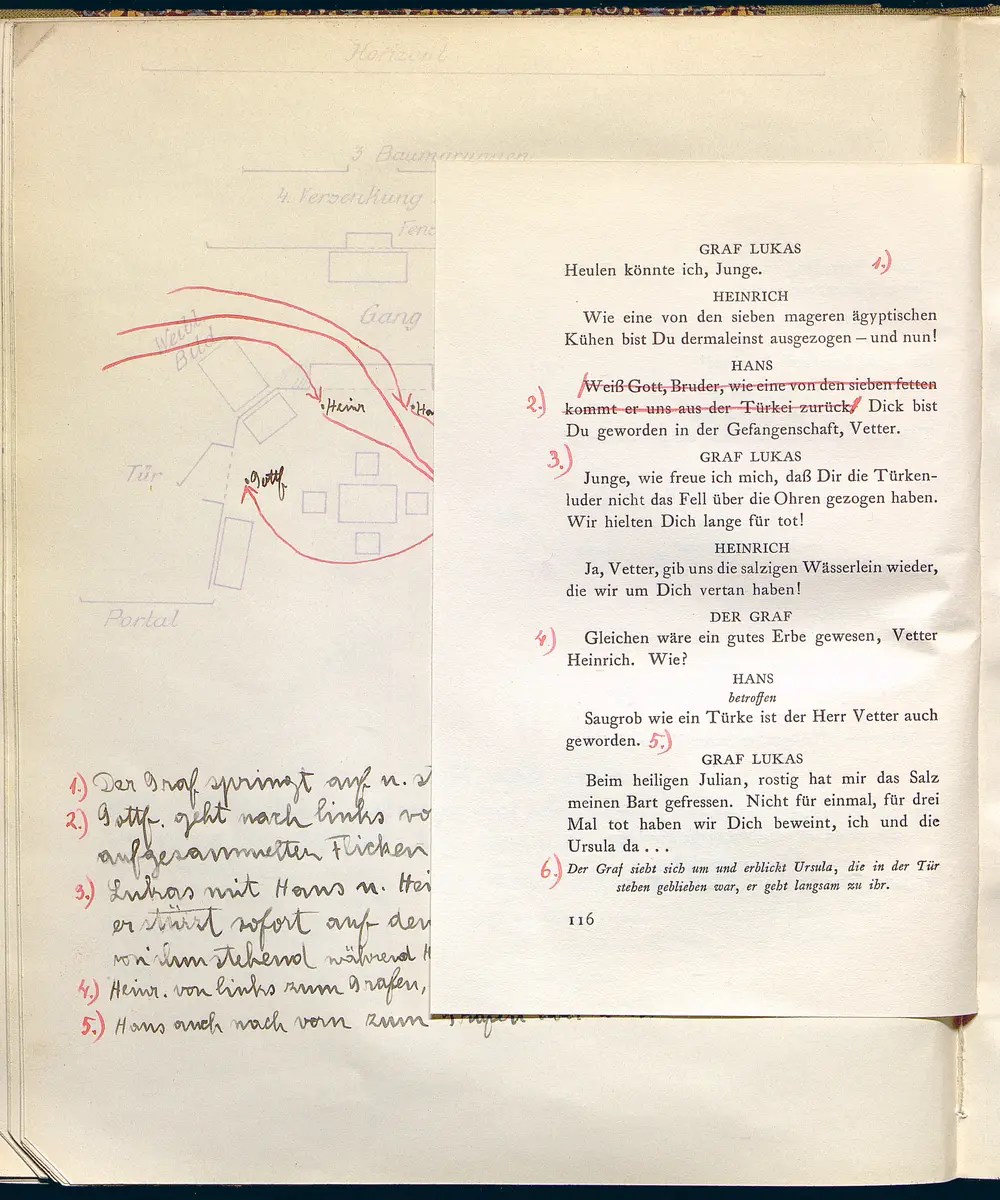 Horizont
3 Baum
4. Versenkung
Gang
Weibl.
Bild
Heinr
Tür
Gottf.
Portal
GRAF LUKAS
Heulen könnte ich, Junge. 1.)
HEINRICH
Wie eine von den sieben mageren ägyptischen
Kühen bist Du dermaleinst ausgezogen – und nun!
HANS
Weiß Gott, Bruder, wie eine von den sieben fetten
2.) kommt er uns aus der Türkei zurück! Dick bist
Du geworden in der Gefangenschaft, Vetter.
3.) GRAF LUKAS
Junge, wie freue ich mich, daß Dir die Türken-
luder nicht das Fell über die Ohren gezogen haben.
Wir hielten Dich lange für tot!
HEINRICH
Ja, Vetter, gib uns die salzigen Wässerlein wieder,
die wir um Dich vertan haben!
DER GRAF
4.) Gleichen wäre ein gutes Erbe gewesen, Vetter
Heinrich. Wie?
HANS
betroffen
Saugrob wie ein Türke ist der Herr Vetter auch
geworden. 5.)
GRAF LUKAS
Beim heiligen Julian, rostig hat mir das Salz
meinen Bart gefressen. Nicht für einmal, für drei
Mal tot haben wir Dich beweint, ich und die
Ursula da . . .
6.) Der Graf sieht sich um und erblickt Ursula, die in der Tür
stehen geblieben war, er geht langsam zu ihr.
116
1.) Der Graf springt auf u. st
2.) Gottf. geht nach links vo
aufgesammelten Flicken
3.) Lukas mit Hans u. Hei
er stürzt sofort auf den
von ihm stehend während H
4.) Heinr. von links zum Grafen,
5.) Hans auch nach vorn zum Grafen